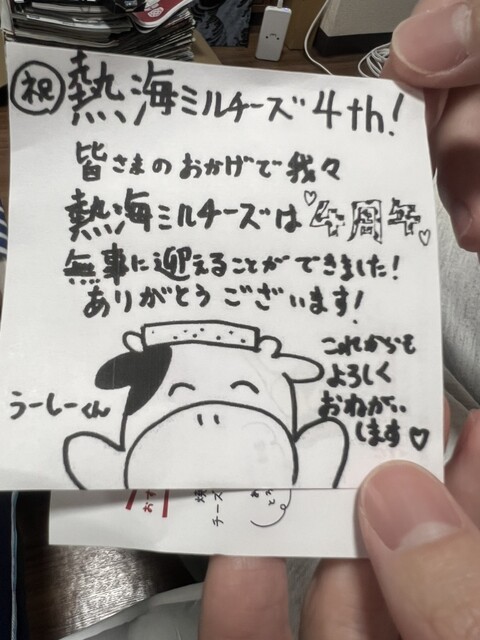 祝 熱海ミルチーズ 4th!
皆さまのおかげで我々
熱海ミルチーズは♡4周年♡
無事に迎えることができました!
ありがとうございます!
これからも
よろしく
おねがい
します♡
うーしーくん
おす
チーズ